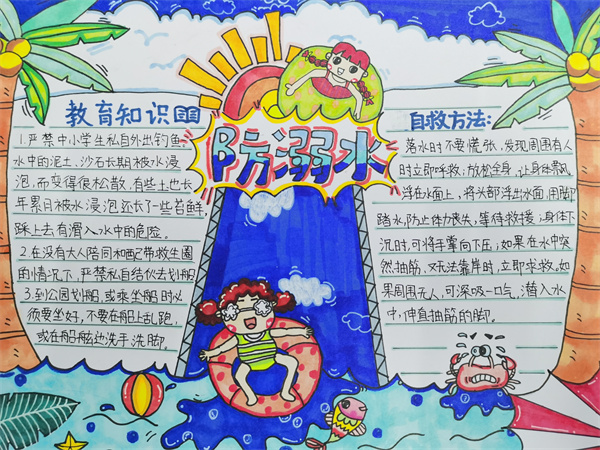 防溺水
教育知识
1.严禁中小学生私自外出钓鱼
水中的泥土、沙石长期被水浸
泡,而变得很松散,有些土也长
年累日被水浸泡还长了一些苔鲜,
踩上去有滑入水中的危险。
2.在没有大人陪同和配带救生圈
的情况下,严禁私自结伙去划船
3.到公园划船,或乘坐船时必
须要坐好,不要在船上乱跑,
或在船舷边洗手洗脚
自救方法:
落水时不要慌张,发现周围有人
时立即呼救,放松全身,让身体飘
浮在水面上,将头部浮出水面,用脚
踏水,防止体力丧失,等待救援;身体下
沉时,可将手掌向下压;如果在水中突
然抽筋,又无法靠岸时,立即求救。如
果周围无人,可深吸一口气,潜入水
中,伸直抽筋的脚.